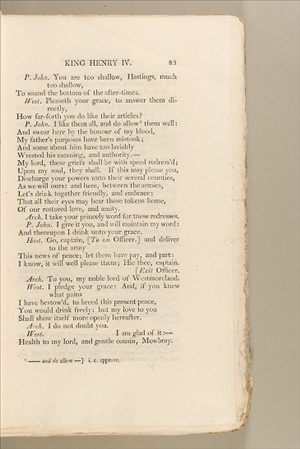 KING HENRY IV. 83
P. John. You are too shallow, Hastings, much
too shallow,
To sound the bottom of the after-times.
West. Pleaseth your grace, to answer them di-
rectly,
How far-forth you do like their articles?
P. John. I like them all, and do allow¹ them well:
And swear here by the honour of my blood,
My father's purposes have been mistook;
And some about him have too lavishly
Wrested his meaning, and authority.—
My lord, these griefs shall be with speed redress'd;
Upon my soul, they shall. If this may please you,
Discharge your powers unto their several counties,
As we will ours: and here, between the armies,
Let's drink together friendly, and embrace;
That all their eyes may bear those tokens home,
Of our restored love, and amity.
Arch. I take your princely word for these redresses.
P. John. I give it you, and will maintain my word:
And thereupon I drink unto your grace.
Hast. Go, captain, [To an Officer.] and deliver
to the army
This news of peace; let them have pay, and part:
I know, it will well please them; Hie thee, captain.
[Exit Officer.
Arch. To you, my noble lord of Westmoreland.
West. I pledge your grace: And, if you knew
what pains
I have bestow'd, to breed this present peace,
You would drink freely: but my love to you
Shall show itself more openly hereafter.
Arch. I do not doubt you.
West. I am glad of it:—
Health to my lord, and gentle cousin, Mowbray.
¹ —— and do allow —] i. e. approve.